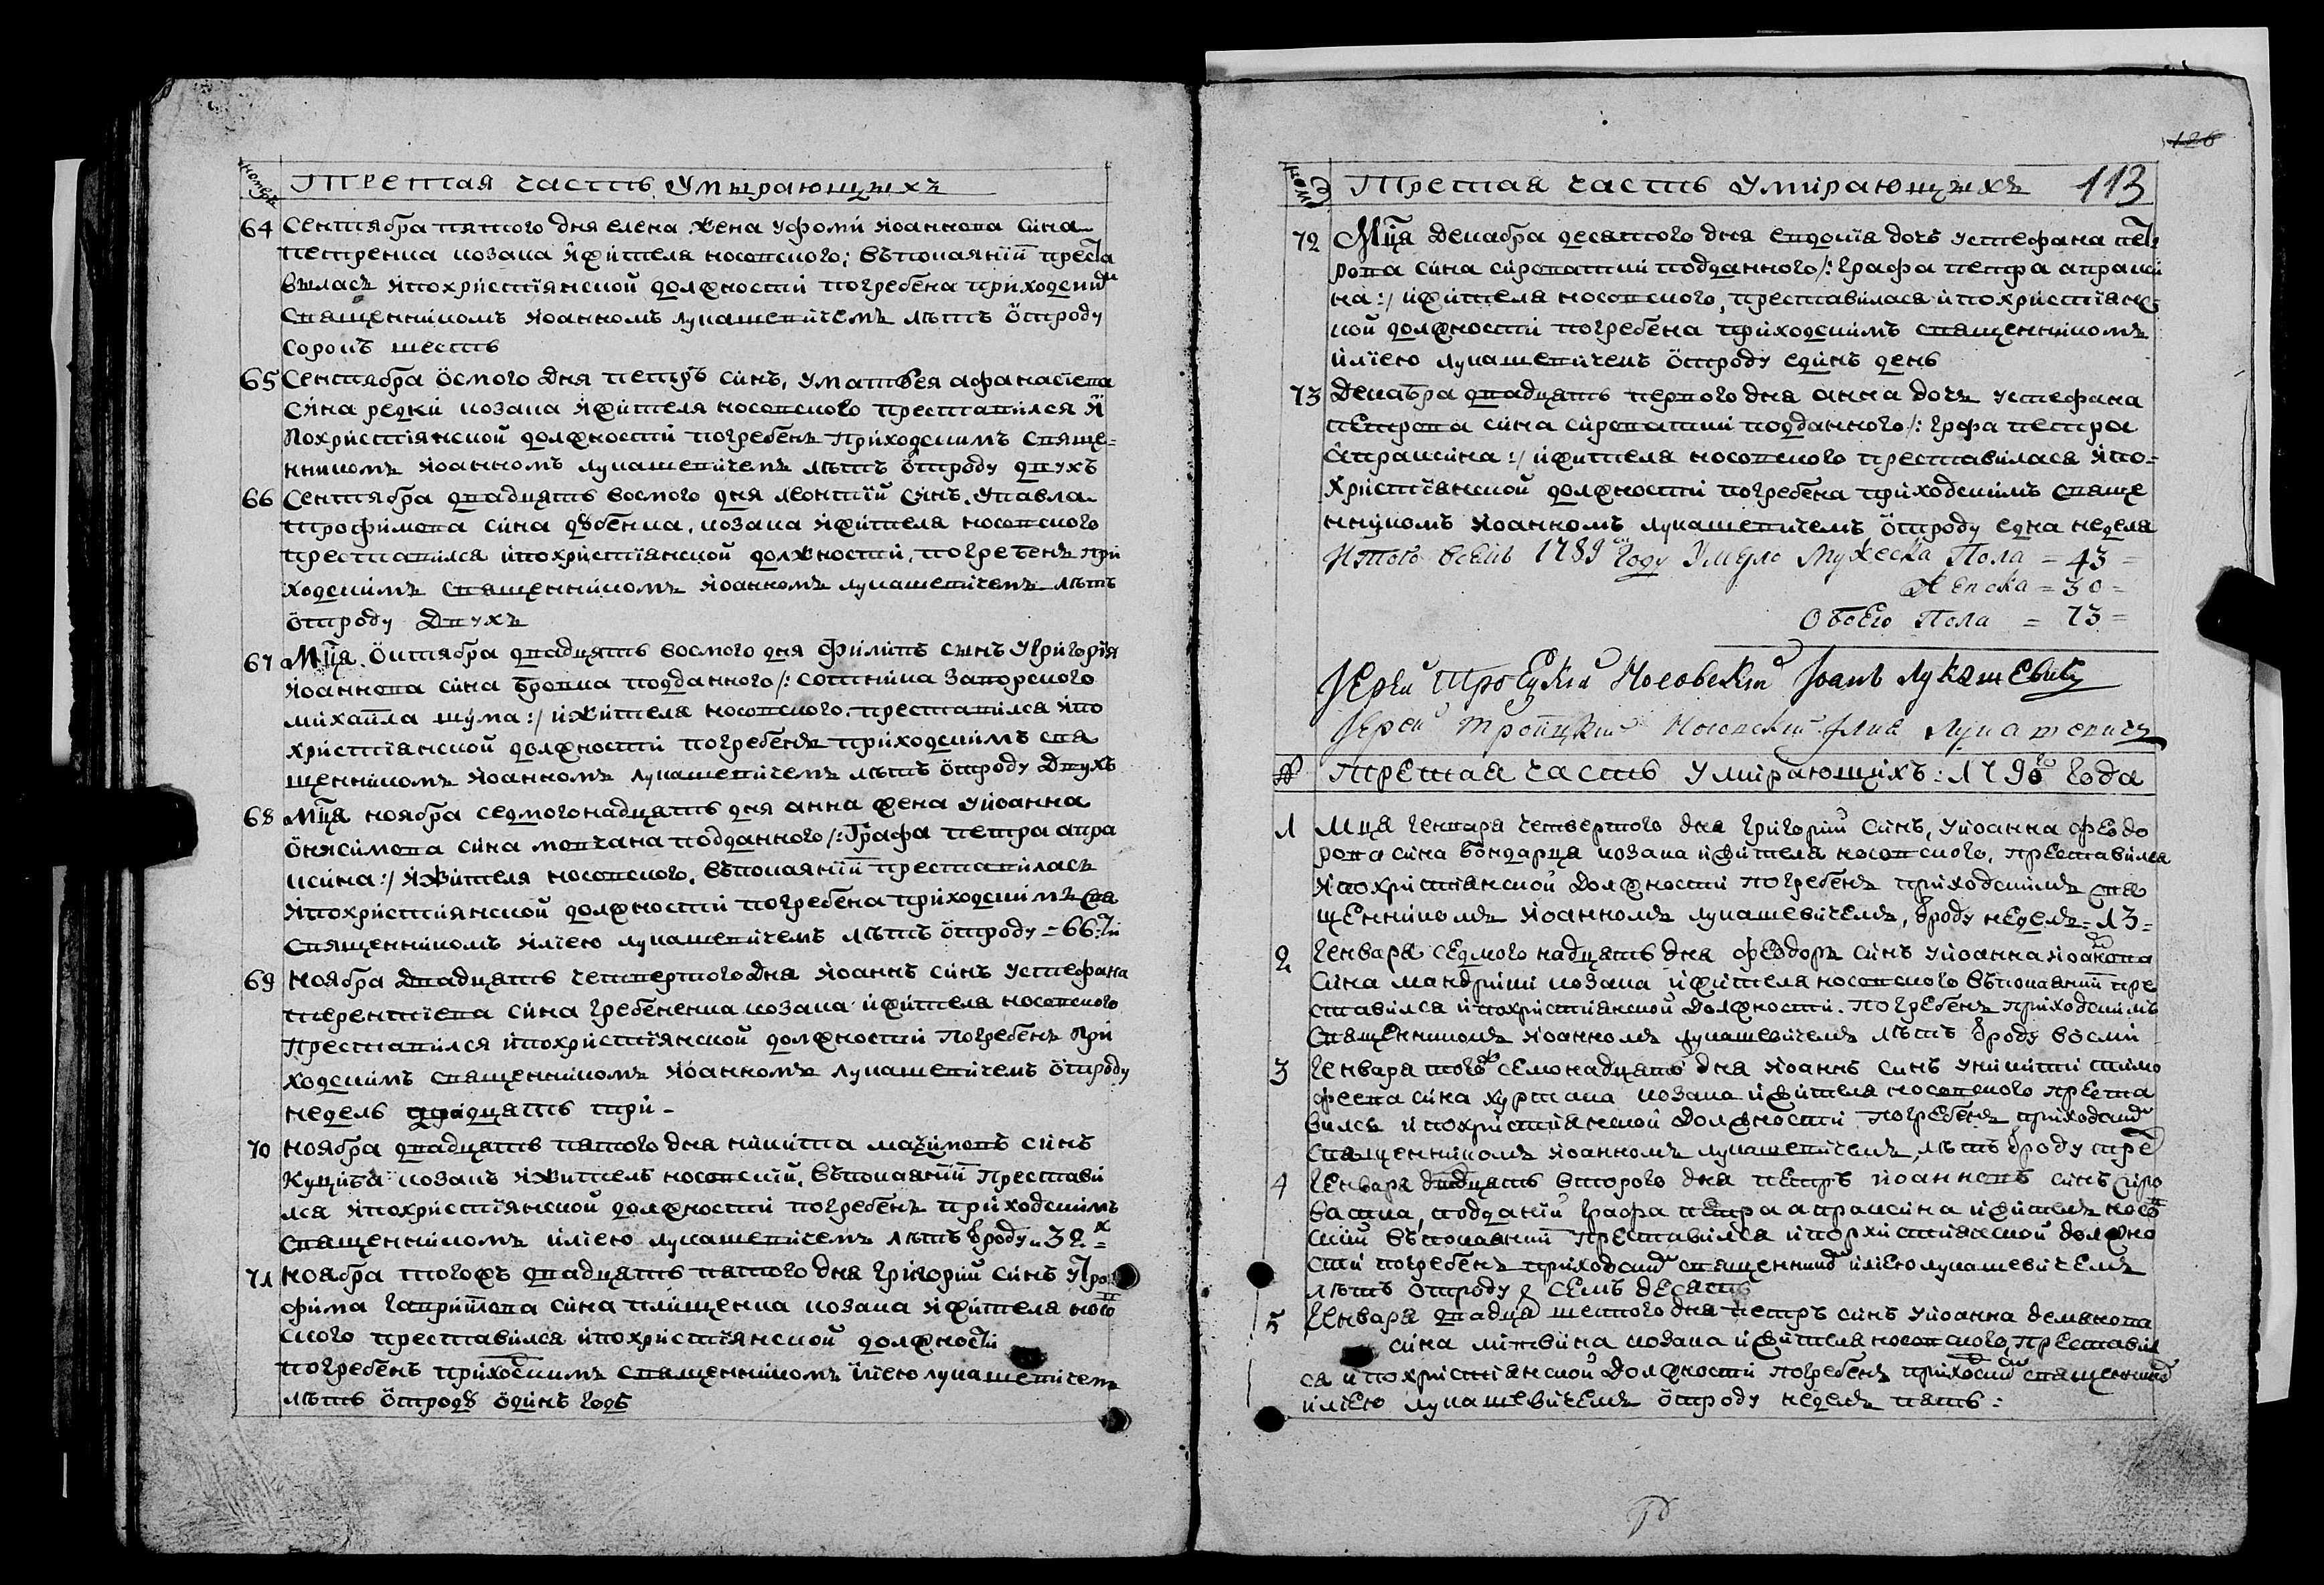 номеръ
Третая часть Умырающыхъ
64 Сентябра пятого дня елена жена уфомы иоаннова сина
петренка козака ижителя носовского; въпокаянїи преста
вилась ипохристїянской должности погребена приходским
священникомъ иоанномъ лукашевичемъ лѣтъ ѿтроду
сорокъ шесть
65 Сентябра ѻсмого дня петръ синъ, уматвея афанасїева
сина редки козака ижителя носовского преставился и
похристїянской должности погребенъ приходскимъ свяще=
нникомъ иоанномъ лукашевичемъ лѣтъ ѿтроду двухъ
66 Сентябра двадцять восмого дня леонтїй синъ, упавла
трофимова сина дꙋбенка, козака ижителя носовского
преставился ипохристїянской должности, погребенъ при
ходскимъ священникомъ иоанномъ лукашевичемъ лѣтъ
ѿтроду Двухъ
67 Мца ѻктября двадцять восмого дня филипъ сынъ Угригорїя
иоаннова сина бровка подданного /: сотника Запорского
михаила шума :/ ижителя носовского преставился ипо
христїянской должности погребенъ приходскимъ свя
щенникомъ иоанномъ лукашевичемъ лѣтъ ѿтроду Двухъ
68 Мца ноября седмогонадцять дня анна жена уиоанна
ѻнисимова сина мовчана подданного /: Графа петра апра
ксина :/ ижителя носовского, въпокаянїи преставилась
ипохристиянской должности погребена приходскимъ свя
священникомъ илїею лукашевичемъ лѣтъ ѿтроду = 66:ти
69 ноября двадцять четвертого Дня иоаннъ синъ устефана
терентїева сина гребененка козака ижителя носовского
Преставился ипохристїянской должности Погребенъ При
ходскимъ священникомъ иоанномъ лукашевичемъ ѿтроду
недель двадцять три -
70 ноября двадцять пятого дня никита маѯимовъ синъ
Куциба козакъ ижитель носовский, въпокаянїи Престави
лся ипохристїянской должности погребенъ приходскимъ
священникомъ илїею лукашевичемъ лѣтъ ѿроду = 32х =
71 ноября тогожъ двадцять пятого дня григорий синъ Утро
фима гавриилова сина плищенка козака ижителя носов
ского преставился ипохристїянской должности
погребенъ приходскимъ священникомъ илїею лукашевичемъ
лѣтъ ѿтродꙋ ѻдинъ годъ
126
Третая часть умирающыхъ 113
72 Мца Декабра десятого дня евдокїя дочъ устефана пет
рова сина сироватки подданного /: графа петра апракси
на :/ ижителя носовского, преставилася ипохристїянс
кой должности погребена приходскимъ священникомъ
илїею лукашевичемъ ѿтроду единъ день
73 Декабра двадцять первого дня анна дочъ устефана
петрова сина сироватки подданного /: графа петра
апраксина :/ ижителя носовского преставилася ипо=
христїянской должности погребена приходскимъ свяще
нникомъ иоанномъ лукашевичемъ ѿтроду една неделя
Итого всемъ 1789м году Умерло Мужеска Пола = 43 =
Женска = 30 =
Обоего Пола = 73 =
Иерей Троецкий Носовский Иоанъ Лукашевичъ
Иерей Троицкий Носовский Илия Лукашевичъ
№ Третая часть умирающихъ: 1790го года
1 Мца генваря четвертого дня григорий синъ, уиоанна федо
рова сина бондарця козака ижителя носовского, преставился
ипохристиянской должности погребенъ приходскимъ свя
щенникомъ иоанномъ лукашевичемъ, ѿроду недель = 13 =
2 Генваря седмого надцять дня феодоръ синъ уиоанна иоаннова
сина мандрики козака ижителя носовского въпокаянїи пре
ставился ипохристиянской должности. погребенъ приходскимъ
священникомъ иоанномъ лукашевичемъ лѣтъ ѿроду восми
3 Генваря тогож семонадцять дня иоаннъ синъ уникити тимо
феева сина хуртака козака ижителя носовского преста
вился ипохристиянской должности погребенъ приходским
священникомъ иоанномъ лукашевичемъ, лѣтъ ѿроду трех
4 Генваря двадцять второго дня петръ иоанновъ синъ сиро
ватка, подданий графа петра апраксина ижитель носов
ский въпокаянїи преставился ипорхистиянской должно
сти погребенъ приходским священником илїею лукашевичемъ
лѣтъ ѿтроду семъ десятъ
5 Генваря двадця шестого дня петръ синъ уиоанна демянова
сина литвина козака ижителя носовского, преставил
ся ипохристиянской должности погребенъ приходским священником
илїею лукашевичемъ ѿтроду недель пять: